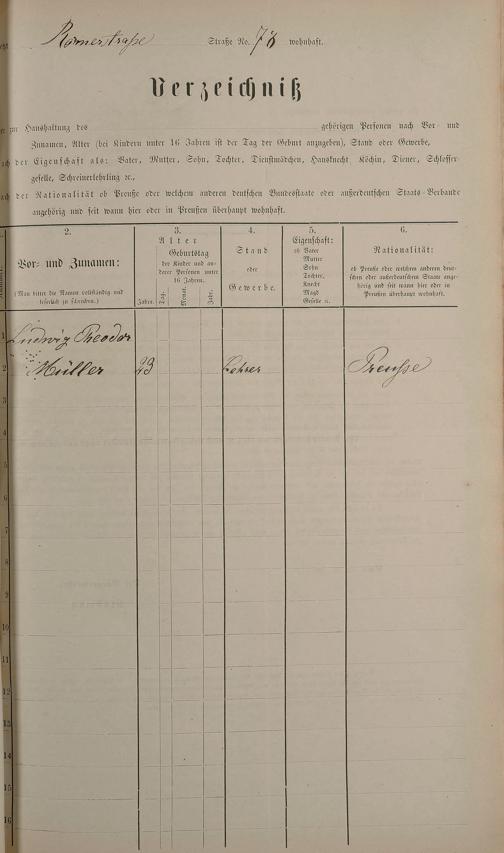 Römerstraße Straße No. 78 wohnhaft.
Verzeichniß
zur Haushaltung des gehörigen Personen nach Vor- und
Zunamen, Alter (bei Kindern unter 16 Jahren ist der Tag der Geburt anzugeben), Stand oder Gewerbe,
der Eigenschaft als: Vater, Mutter, Sohn, Tochter, Dienstmädchen, Hausknecht, Köchin, Diener, Schlosser-
geselle, Schreinerlehrling ꝛc.,
der Nationalität ob Preuße oder welchem anderen deutschen Bundesstaate oder außerdeutschen Staats-Verbande
angehörig und seit wann hier oder in Preußen überhaupt wohnhaft.
2.
Vor- und Zunamen:
(Man bittet die Namen vollständig und
leserlich zu schreiben.)
3.
Alter
Geburtstag
der Kinder und an-
derer Personen unter
16 Jahren.
Jahre. Tag. Monat. Jahr.
4.
Stand
oder
Gewerbe.
5.
Eigenschaft:
ob Vater
Mutter
Sohn
Tochter,
Knecht
Magd
Geselle u.
6.
Nationalität:
ob Preuße oder welchem anderen deut-
schen oder außerdeutschen Staate ange-
hörig und seit wann hier oder in
Preußen überhaupt wohnhaft.
1 Ludwig Theodor
2 Müller 23 Lehrer Preuße
3
4
5
6
7
8
9
10
11
12
13
14
15
16